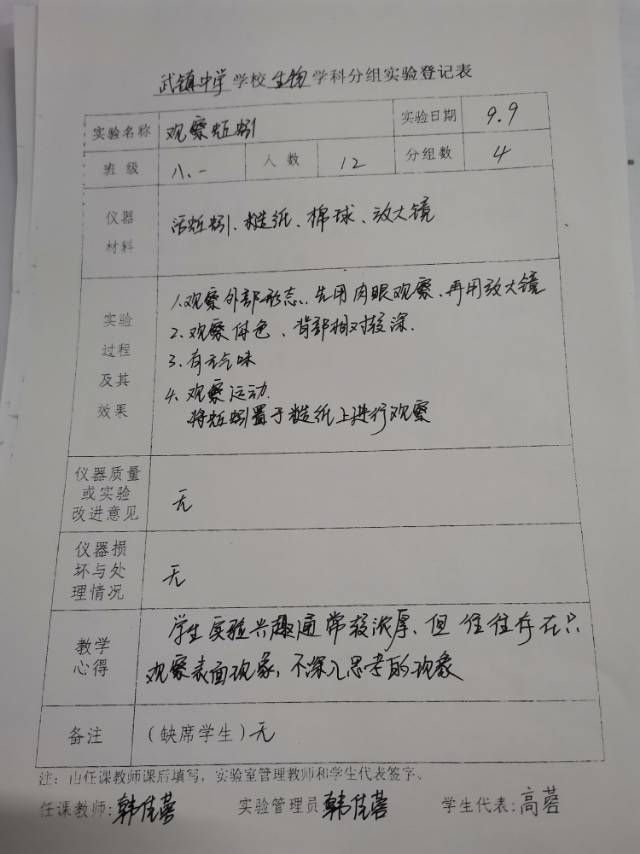 武镇中学学校生物学科分组实验登记表
实验名称 观察蚯蚓 实验日期 9.9
班级 八.一 人数 12 分组数 4
仪器材料 活蚯蚓、糙纸、棉球、放大镜
实验过程及其效果
1.观察外部形态、先用肉眼观察、再用放大镜
2.观察体色、背部相对较深.
3.有无气味
4.观察运动.
将蚯蚓置于糙纸上进行观察
仪器质量或实验改进意见 无
仪器损坏与处理情况 无
教学心得 学生实验兴趣通常较浓厚、但往往存在只
观察表面现象,不深入思考的现象
备注 (缺席学生)无
注:由任课教师课后填写,实验室管理教师和学生代表签字。
任课教师:韩佳蓉 实验管理员 韩佳蓉 学生代表:高蓉